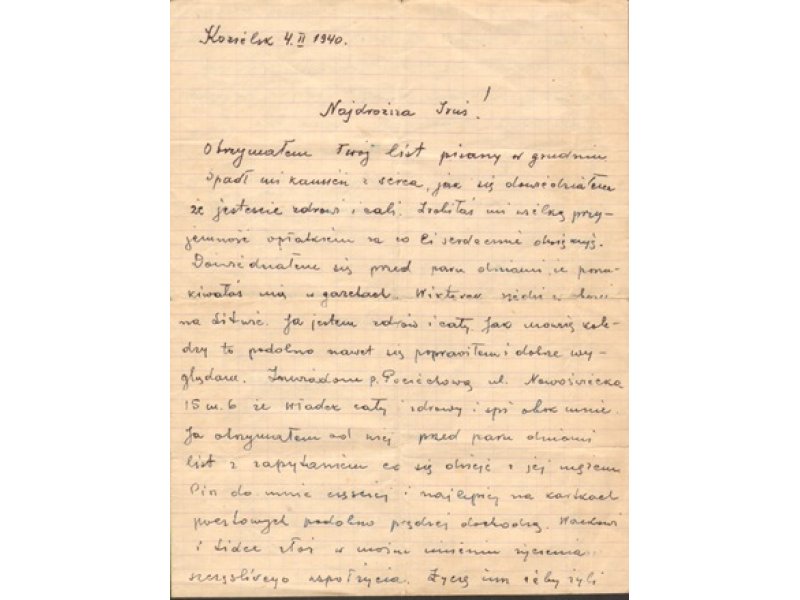 Kozielsk 4.II 1940.
Najdroższa Iruś!
Otrzymałem Twój list pisany w grudniu
Spadł mi kamień z serca, jak się dowiedziałem
że jesteście zdrowi i cali. Zrobiłaś mi wielką przy-
jemność opłatkiem za co Ci serdecznie dziękuję.
Dowiedziałem się przed paru dniami, że poszu-
kiwałaś mię w gazetach. siedzi w
na Litwie. Ja jestem zdrów i cały. Jak mówią kole-
dzy to podobno nawet się poprawiłem i dobrze wy-
glądam. Zawiadom p. Pociechową ul. Nowoświecka
15 m. 6 że Władek cały i zdrowy i śpi obok mnie.
Ja otrzymałem od niej przed paru dniami
list z zapytaniem co się dzieje z jej mężem
Pisz do mnie częściej i najlepiej na kartkach
pocztowych podobno prędzej dochodzą. Wackowi
i Lidce złóż w moim imieniu życzenia
szczęśliwego współżycia. Życzę im żeby żyli